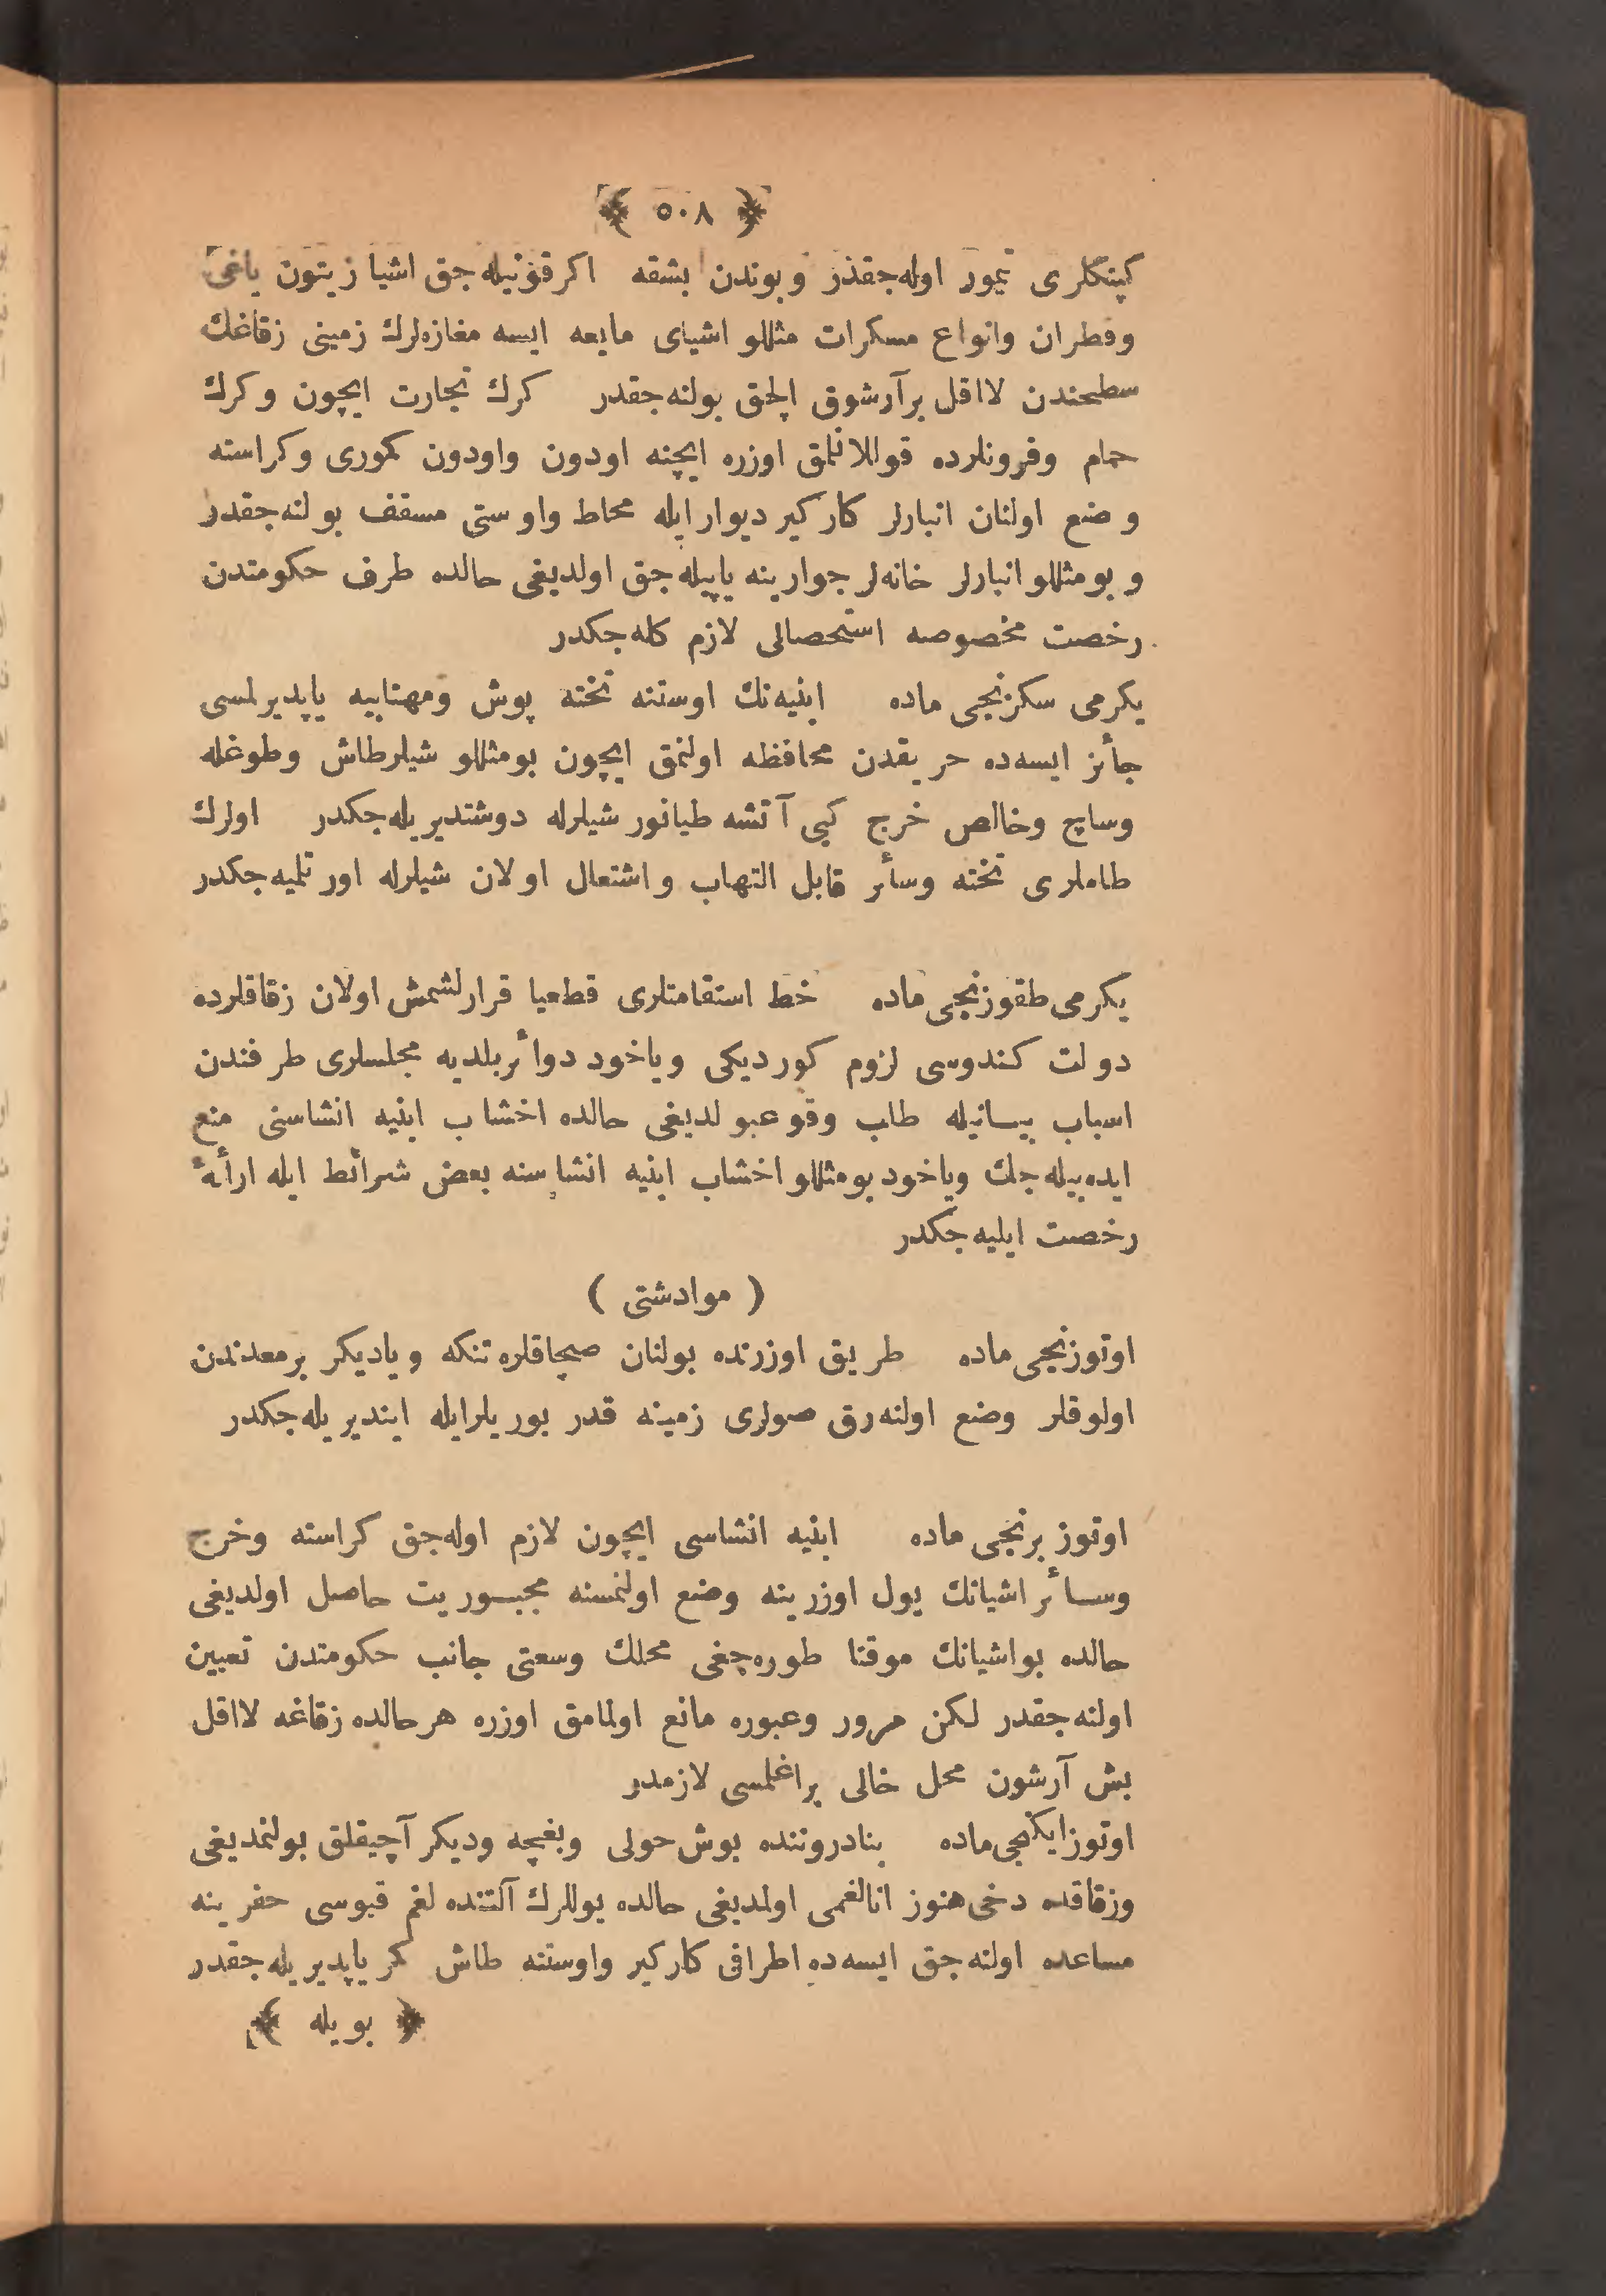 ﴿ ٥٠٨ ﴾
كپنكلرى تيمور اوله‌جقدر وبوندن بشقه اكر قونيله‌جق اشيا زيتون ياغى
وقطران وانواع مسكرات مثللو اشياى مايعه ايسه مغازه‌لرك زمينى زقاغك
سطحندن لااقل برآرشوق الچق بولنه‌جقدر كرك تجارت ايچون وكرك
حمام وفرونلرده قوللانلمق اوزره ايچنه اودون واودون كمورى وكراسته
وضع اولنان انبارلر كاركير ديوارايله محاط واوستى مسقف بولنه‌جقدر
وبومثللو انبارلر خانه‌لر جوارينه ياپيله‌جق اولديغى حالده طرف حكومتدن
رخصت مخصوصه استحصالى لازم كله‌جكدر
يكرمى سكزنجى ماده ابنيه‌نك اوستنه تخته پوش ومهتابيه ياپديرلمسى
جائز ايسه‌ده حريقدن محافظه اولنمق ايچون بومثللو شيلرطاش وطوغله
وساج وخالص خرج كبى آتشه طيانور شيلرله دوشتديريله‌جكدر اولرك
طاملرى تخته وسائر قابل التهاب واشتعال اولان شيلرله اورتلميه‌جكدر
يكرمى طقوزنجى ماده خط استقامتلرى قطعيا قرارلشمش اولان زقاقلرده
دولت كندوسى لزوم كورديكى وياخود دوائر بلديه مجلسلرى طرفندن
اسباب بيسانيله طاب وقوعبولديغى حالده اخشاب ابنيه انشاسنى منع
ايده‌بيله‌جك وياخود بومثللو اخشاب ابنيه انشاسنه بعض شرائط ايله ارائهٔ
رخصت ايليه‌جكدر
( موادشتى )
اوتوزنجى ماده طريق اوزرنده بولنان صچاقلره تنكه وياديكر برمعدندن
اولوقلر وضع اولنه‌رق صولرى زمينه قدر بوريلرايله اينديريله‌جكدر
اوتوز برنجى ماده ابنيه انشاسى ايچون لازم اوله‌جق كراسته وخرج
وسائر اشيانك يول اوزرينه وضع اولنمسنه مجبوريت حاصل اولديغى
حالده بواشيانك موقتا طوره‌جغى محلك وسعتى جانب حكومتدن تعيين
اولنه‌جقدر لكن مرور وعبوره مانع اولمامق اوزره هرحالده زقاغه لااقل
بش آرشون محل خالى براغلمسى لازمدر
اوتوزايكنجى ماده بنادروننده بوش حولى وبغچه وديكر آچيقلق بولنمديغى
وزقاقده دخى هنوز انالغمى اولمديغى حالده يوللرك آلتنده لغم قبوسى حفرينه
مساعده اولنه‌جق ايسه‌ده اطرافى كاركير واوستنه طاش كمر ياپديريله‌جقدر
﴿ بويله ﴾